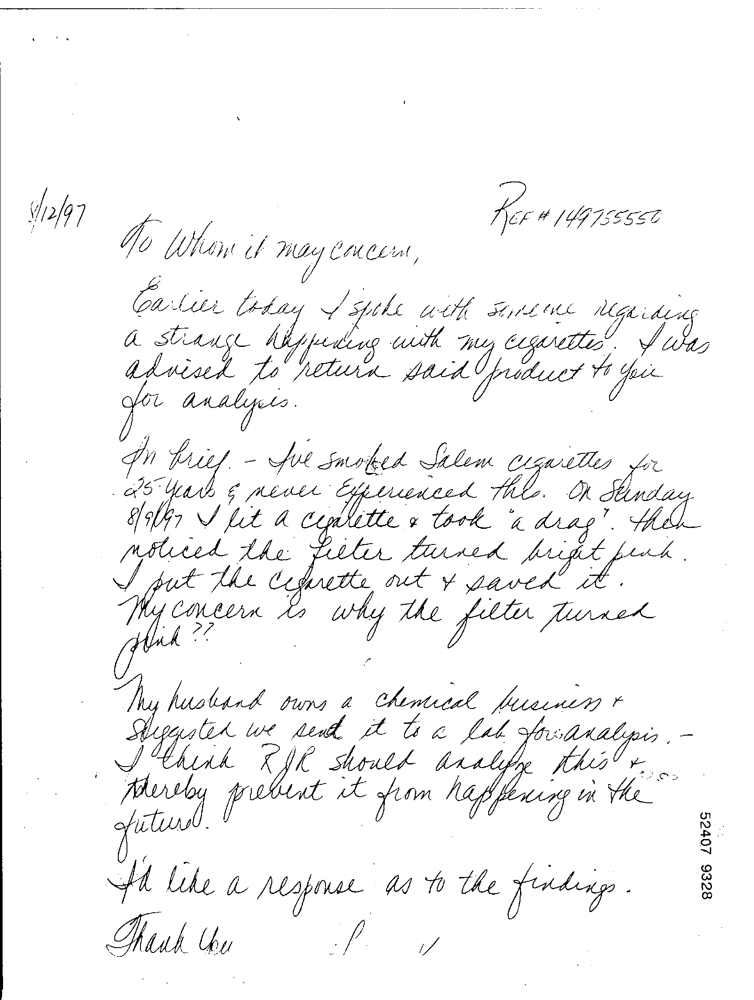 8/12/97
REF # 149755550
To Whom it may concern,
Earlier today I spoke with someone regarding
a strange happening with my cigarettes. I was
advised to return said product to you
for analysis.
In brief. - I've smoked Salem cigarettes for
25 years & never experienced this. On Sunday
8/9/97 I lit a cigarette & took "a drag". then
noticed the filter turned bright pink.
I put the cigarette out & saved it.
My concern is why the filter turned
pink??
My husband owns a chemical business &
suggested we send it to a lab for analysis. -
I think RJR should analyze this &
thereby prevent it from happening in the
future.
I'd like a response as to the findings.
Thank You
52407 9328